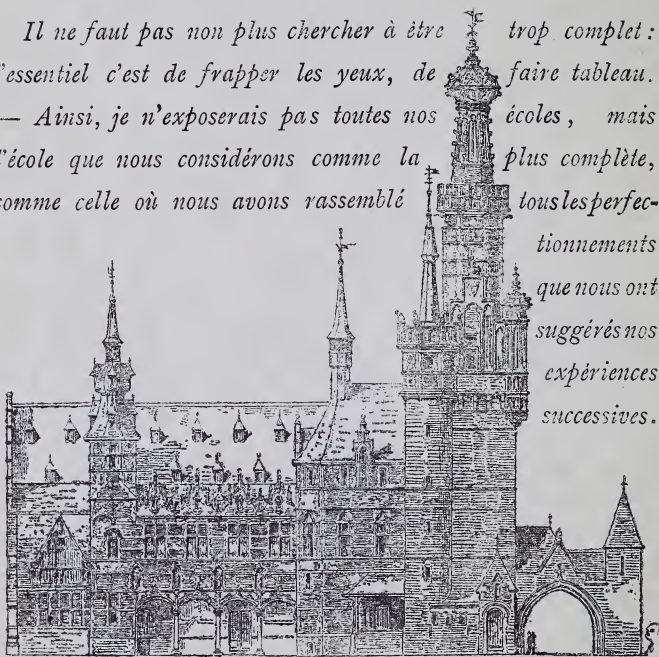 Il ne faut pas non plus chercher à être trop complet :
l'essentiel c'est de frapper les yeux, de faire tableau.
— Ainsi, je n'exposerais pas toutes nos écoles, mais
l'école que nous considérons comme la plus complète,
comme celle où nous avons rassemblé tous les perfec-
tionnements
que nous ont
suggérés nos
expériences
successives.